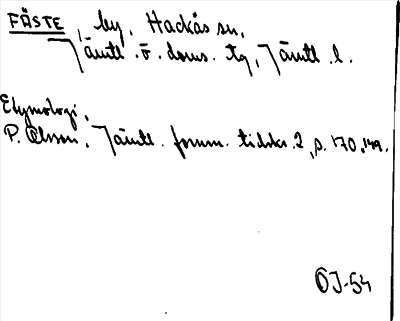 FÄSTE, by, Hackås sn.
Jämtl. ö. doms. tg, Jämtl. l.
Etymologi,
P. Olsson, Jämtl. fornm. tidskr. 2, s. 170.
OJ-54